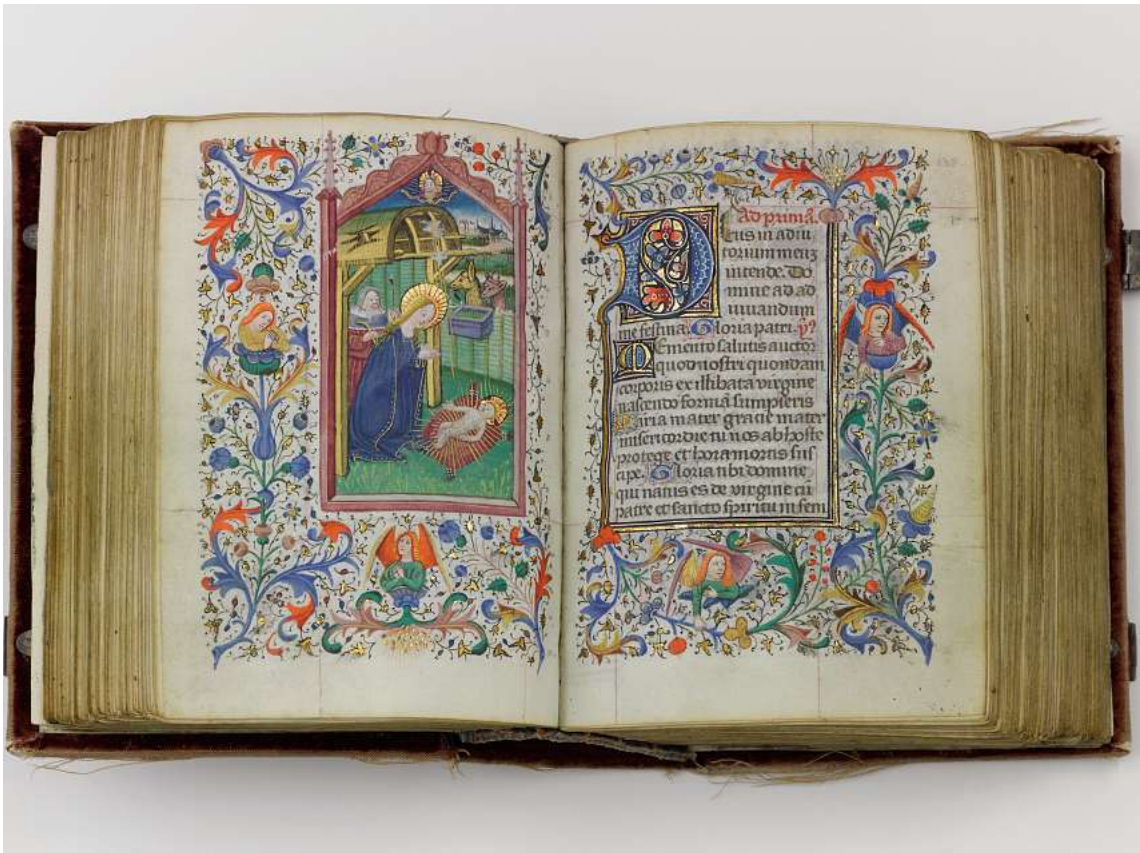 Ad primā.
Deus in adiu
torium meuȝ
intende. Do
mine ad ad
iuuandum
me festina. Gloria patri. ỹ?
Memento salutis auctor
quod nostri quondam
corporis ex illibata virgine
nascendo formā sumpseris
Maria mater gracie mater
misericordie tu nos ab hoste
protege et hora mortis sus
cipe. Gloria tibi domine
qui natus es de virgine cū
patre et sancto spiritu in semi